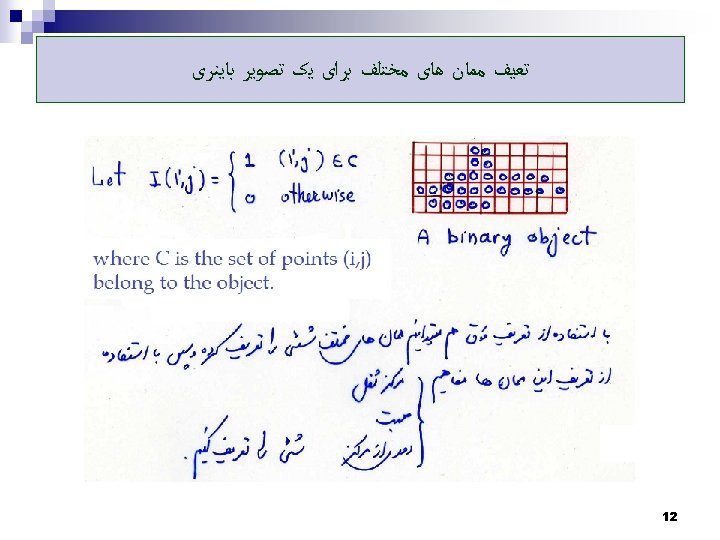 تعیف ممان های مختلف برای یک تصویر باینری
Let I(i,j) = { 1 (i,j) ∈ C
0 otherwise
A binary object
where C is the set of points (i,j)
belong to the object.
با استفاده از تعریف فوق هم میتوانیم ممان های مختلف شئی را تعریف کرده و سپس با استفاده
از تعریف این ممان ها مفاهیم
مرکز ثقل
جهت
را تعریف کنیم.
12